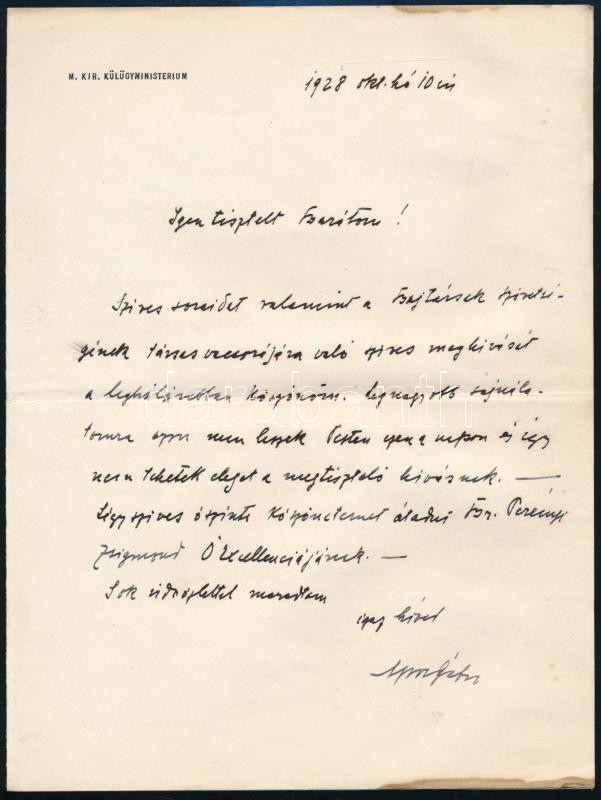 M. KIR. KÜLÜGYMINISTERIUM
1928 okt. hó 10 én
Igen tisztelt Barátom!
Szives soraidat valamint a Bajtársak szövetsé-
gének társas vacsorájára való szives meghivását
a leghálásabban köszönöm. Legnagyobb sajnála-
tomra azon nem leszek Pesten ezen a napon és igy
nem tehetek eleget a megtisztelő hivásnak. —
Légy szives őszinte köszönetemet átadni Br. Perényi
Zsigmond Ő Excellenciájának. —
Sok üdvözlettel maradtam
igaz hived
Apor Gábor
darabanth